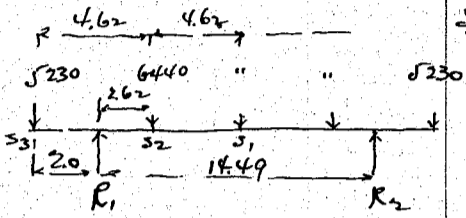 4.62 4.62
5230 6440 " " 5230
2.62
S31 S2 S1
2.0 14.49
R1 R2